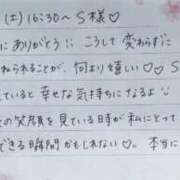 (土) 16:30〜 S様♡
にありがとう!! こうして変わらずに
ねられることが、何より嬉しい♡
していると 幸せな気持ちになるよ
の笑顔を見ている時が私にとって
できる瞬間かもしれない♡。本当に